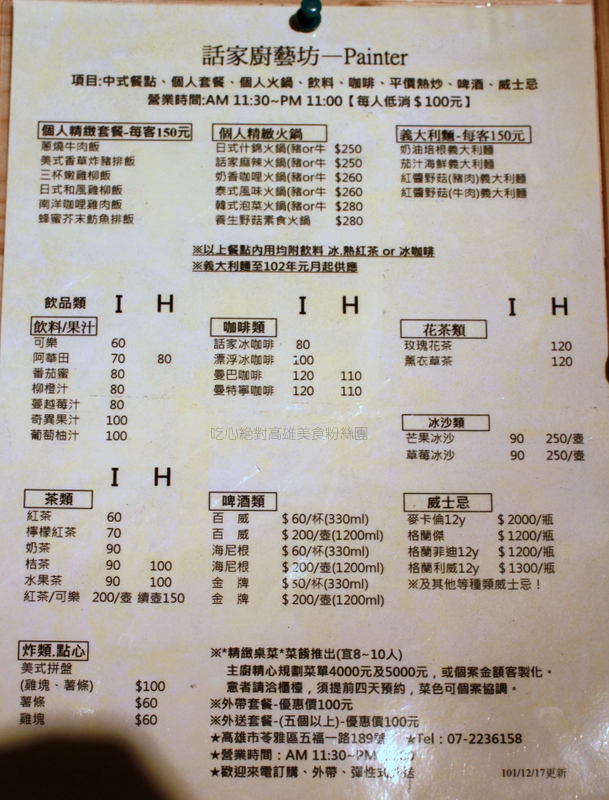 話家廚藝坊—Painter
項目:中式餐點、個人套餐、個人火鍋、飲料、咖啡、平價熱炒、啤酒、威士忌
營業時間:AM 11:30~PM 11:00【每人低消＄100元】
個人精緻套餐-每客150元
蔥燒牛肉飯
美式香草炸豬排飯
三杯嫩雞柳飯
日式和風雞柳飯
南洋咖哩雞肉飯
蜂蜜芥末魴魚排飯
個人精緻火鍋
日式什錦火鍋(豬or牛 $250
話家麻辣火鍋(豬or牛 $250
奶香咖哩火鍋(豬or牛 $260
泰式風味火鍋(豬or牛 $260
韓式泡菜火鍋(豬or牛 $280
養生野菇素食火鍋 $280
義大利麵-每客150元
奶油培根義大利麵
茄汁海鮮義大利麵
紅醬野菇(豬肉)義大利麵
紅醬野菇(牛肉)義大利麵
※以上餐點內用均附飲料 冰.熱紅茶 or 冰咖啡
※義大利麵至102年元月起供應
飲品類 I H
飲料/果汁
可樂 60
阿華田 70 80
番茄蜜 80
柳橙汁 80
蔓越莓汁 80
奇異果汁 100
葡萄柚汁 100
I H
咖啡類
話家冰咖啡 80
漂浮冰咖啡 100
曼巴咖啡 120 110
曼特寧咖啡 120 110
I H
花茶類
玫瑰花茶 120
薰衣草茶 120
冰沙類
芒果冰沙 90 250/壺
草莓冰沙 90 250/壺
吃心絕對高雄美食粉絲團
I H
茶類
紅茶 60
檸檬紅茶 70
奶茶 90
桔茶 90 100
水果茶 90 100
紅茶/可樂 200/壺 續壺150
啤酒類
百 威 $60/杯(330ml)
百 威 $200/壺(1200ml)
海尼根 $60/杯(330ml)
海尼根 $200/壺(1200ml)
金 牌 $50/杯(330ml)
金 牌 $200/壺(1200ml)
威士忌
麥卡倫12y $2000/瓶
格蘭傑 $1200/瓶
格蘭菲迪12y $1200/瓶
格蘭利威12y $1300/瓶
※及其他等種類威士忌！
炸類.點心
美式拼盤
(雞塊、薯條) $100
薯條 $60
雞塊 $60
※*精緻桌菜*菜餚推出(宜8~10人)
主廚精心規劃菜單4000元及5000元，或個案金額客製化。
意者請洽櫃檯，須提前四天預約，菜色可個案協調。
※外帶套餐-優惠價100元
※外送套餐-(五個以上)-優惠價100元
★高雄市苓雅區五福一路189號 ★Tel：07-2236158
★營業時間：AM 11:30~PM
★歡迎來電訂購、外帶、彈性 送
101/12/17更新